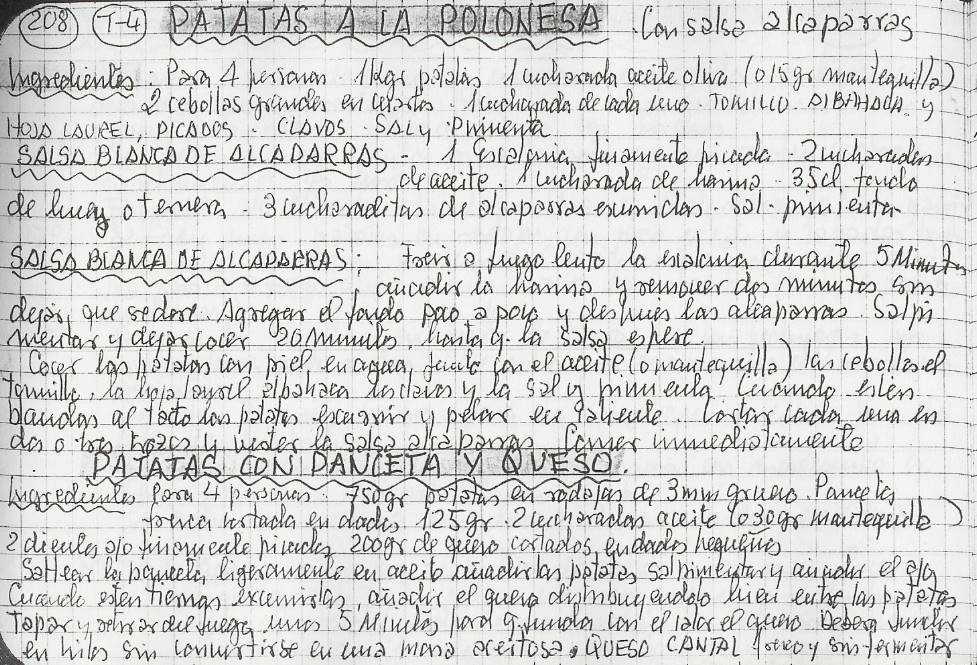 208 T-4 PATATAS A LA POLONESA. Con salsa alcaparras
Ingredientes: Para 4 personas. 1 Kgr patatas 1 cucharada aceite oliva (o 15 gr mantequilla)
2 cebollas grandes en cuartos. 1 cucharada de cada uno. TOMILLO. ALBAHACA y
HOJA LAUREL, PICADOS. CLAVOS. SAL y Pimienta
SALSA BLANCA DE ALCAPARRAS - 1 Escalonia finamente picada - 2 cucharadas
de aceite. 1 cucharada de harina - 35 cl. fondo
de buey o ternera - 3 cucharaditas de alcaparras escurridas. Sal - pimienta
SALSA BLANCA DE ALCAPARRAS: Freir a fuego lento la escalonia durante 5 Minutos
añadir la harina y remover dos minutos sin
dejar que se dore. Agregar el fondo poco a poco y despues las alcaparras. Salpi
mentar y dejar cocer 20 minutos, hasta q. la salsa espere.
Cocer las patatas con piel, en agua, junto con el aceite (o mantequilla) las cebollas el
tomillo, la hoja laurel albahaca los clavos y la sal y pimienta. Cuando esten
blandas al tacto las patatas escurrir y pelar en caliente. Cortar cada una en
dos o tres trozos y verter la salsa alcaparras. Comer inmediatamente
PATATAS CON PANCETA Y QUESO.
Ingredientes Para 4 personas. 750 gr patatas en rodajas de 3 mm grueso. Panceta
fresca cortada en dados 125 gr. 2 cucharadas aceite (o 30 gr mantequilla)
2 dientes ajo finamente picados 200 gr de queso cortados en dados pequeños
Saltear la panceta, ligeramente en aceite añadir las patatas salpimentar y añadir el ajo
Cuando esten tiernas escurrirlas, añadir el queso distribuyendolo bien entre las patatas
Tapar y retirar del fuego unos 5 Minutos para q. funda con el calor el queso. Debera fundir
en hilos sin convertirse en una masa aceitosa. QUESO CANTAL fresco y sin fermentar